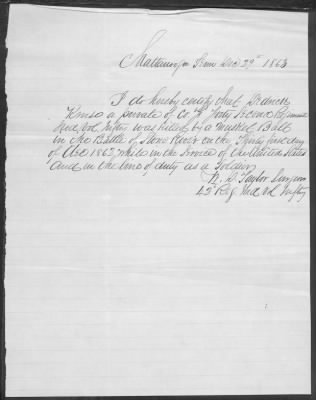 Chattanooga Tenn Dec 29th 1863
I do hereby certify that Frederick
Kruse a private of Co Forty Second Regiment
Ind. Vol Inftry was killed by a Musket Ball
in the Battle of Stone River on the Thirty first day
of Dec 1862, while in the Service of the United States
and in the line of duty as a Soldier
Taylor Surgeon
42d Reg Ind Vol Inftry